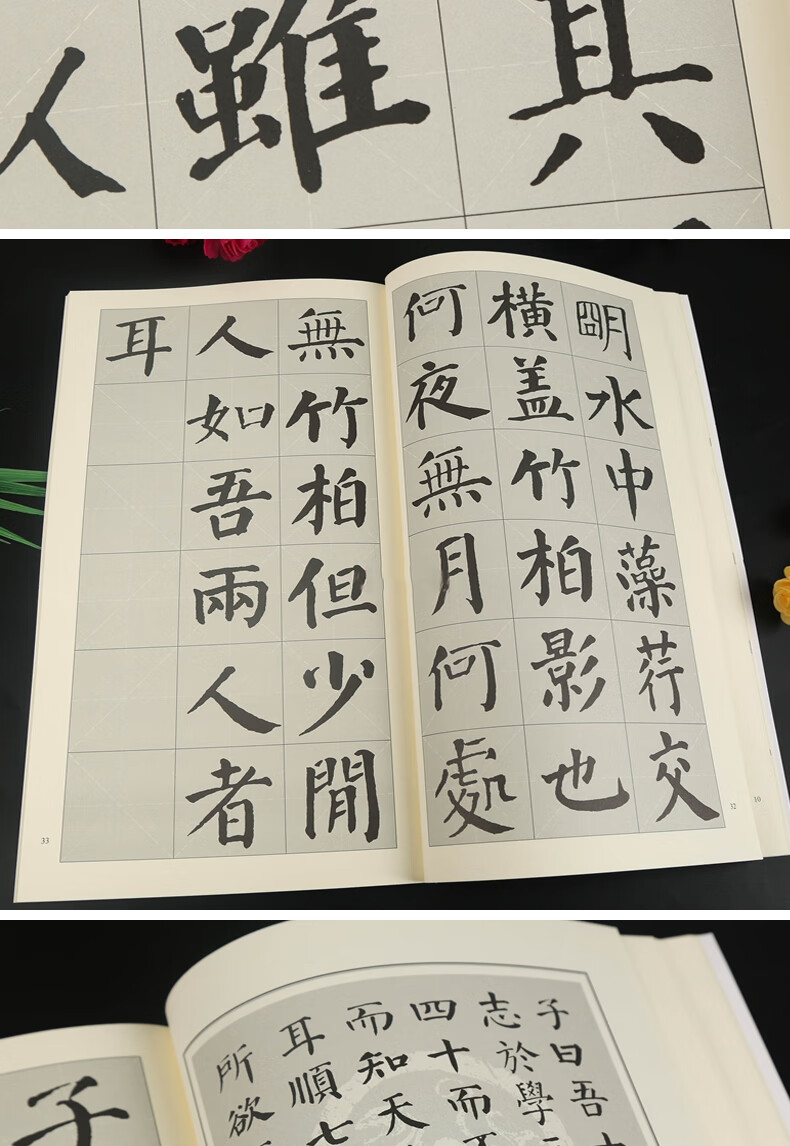 其
雖
人
朙水中藻荇交
橫盖竹柏影也
何夜無月何處
32
10
無竹柏但少閒
人如吾兩人者
耳
33
子曰吾
志於學
四十而
而知天
耳順七
所欲
子